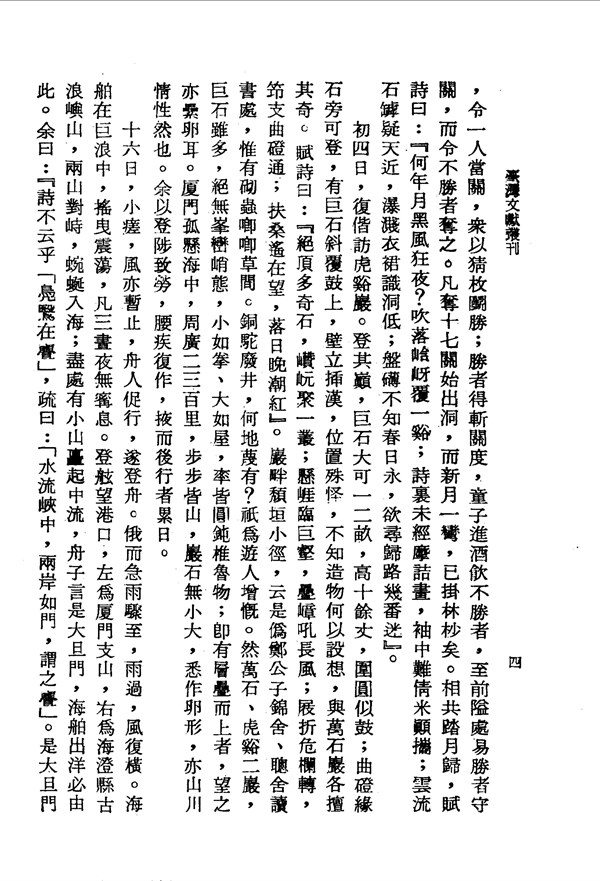 臺灣文獻叢刊
四
，令一人當關，衆以猜枚鬬勝；勝者得斬關度，童子進酒飲不勝者，至前隘處易勝者守
關，而令不勝者奪之。凡奪十七關始出洞，而新月一彎，已掛林杪矣。相共踏月歸，賦
詩曰：『何年月黑風狂夜？吹落崆岈覆一谿；詩裏未經摩詰畫，袖中難倩米顚攜；雲流
石罅疑天近，瀑濺衣裙識洞低；盤礴不知春日永，欲尋歸路幾番迷』。
初四日，復偕訪虎谿巖。登其巔，巨石大可一二畝，高十餘丈，圍圓似鼓；曲磴緣
石旁可登，有巨石斜覆鼓上，壁立揷漢，位置殊怪，不知造物何以設想，與萬石巖各擅
其奇。賦詩曰：『絕頂多奇石，巑岏聚一叢；懸崖臨巨壑，疊嶂吼長風；展折危欄轉，
笻支曲磴通；扶桑遙在望，落日晚潮紅』。巖畔頹垣小徑，云是僞鄭公子錦舍、聰舍讀
書處，惟有砌蟲啣啣草間。銅駝廢井，何地蔑有？祇爲遊人增慨。然萬石、虎谿二巖，
巨石雖多，絕無峯巒峭態，小如拳、大如屋，率皆圓鈍椎魯物；卽有層疊而上者，望之
亦纍卵耳。厦門孤懸海中，周廣二三百里，步步皆山，巖石無小大，悉作卵形，亦山川
情性然也。余以登陟致勞，腰疾復作，掖而後行者累日。
十六日，小瘥，風亦暫止，舟人促行，遂登舟。俄而急雨驟至，雨過，風復橫。海
舶在巨浪中，搖曳震蕩，凡三晝夜無寗息。登舷望港口，左爲厦門支山，右爲海澄縣古
浪嶼山，兩山對峙，蜿蜒入海；盡處有小山矗起中流，舟子言是大旦門，海舶出洋必由
此。余曰：『詩不云乎「鳧鷖在亹」，疏曰：「水流峽中，兩岸如門，謂之亹」。是大旦門